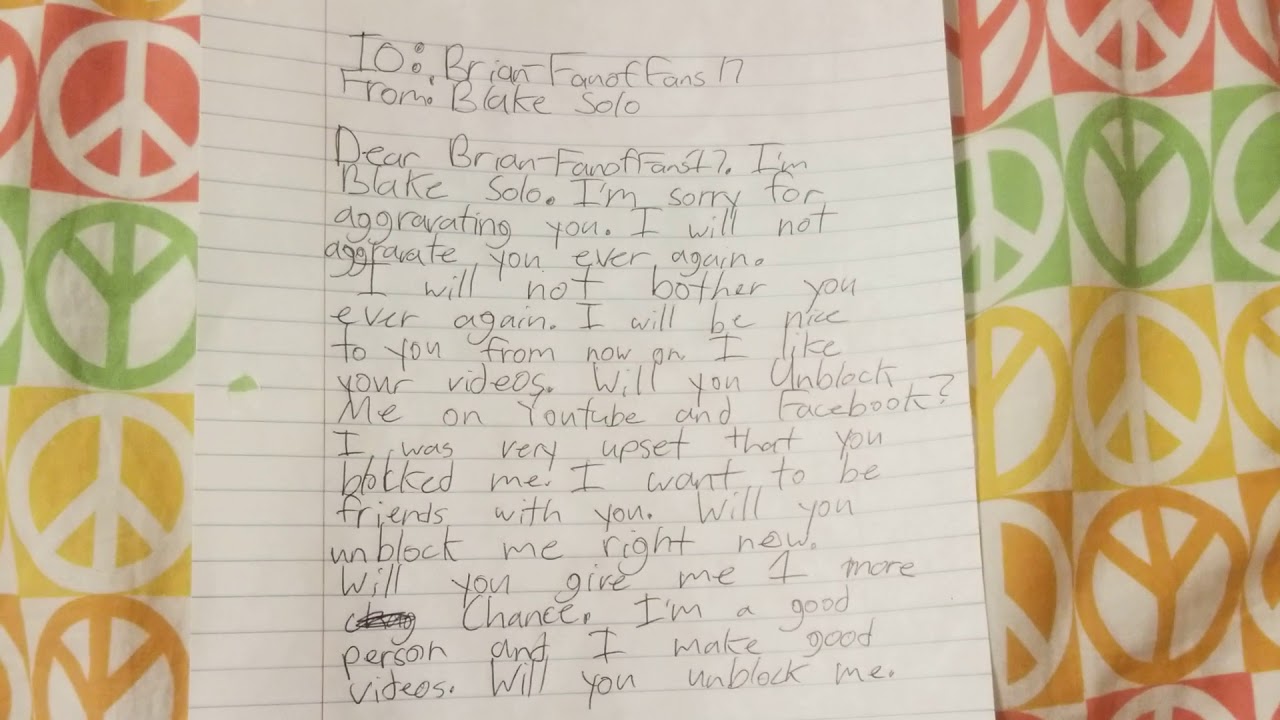 TO: Brian-FanofFans17
From: Blake Solo
Dear Brian-FanofFans17. I'm
Blake Solo. I'm sorry for
aggravating you. I will not
aggravate you ever again.
I will not bother you
ever again. I will be nice
to you from now on. I like
your videos. Will you Unblock
Me on Youtube and Facebook?
I was very upset that you
blocked me. I want to be
friends with you. Will you
unblock me right now.
Will you give me 1 more
Chance. I'm a good
person and I make good
videos. Will you unblock me.